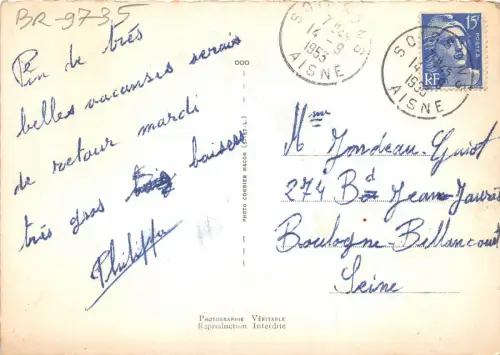 BR-9735
Fin de très
belles vacanses serais
de retour mardi
très gros baisers
Philippe
PHOTO COMBIER MACON (S.-&-L.)
SOISSONS
14 -9
1953
AISNE
SOISSONS
14 -9
1953
AISNE
15F
POSTES
RF
Mme Jourdeau-Guiot
274 Bd Jean-Jaurès
Boulogne-Billancourt
Seine
PHOTOGRAPHIE VÉRITABLE
Reproduction Interdite